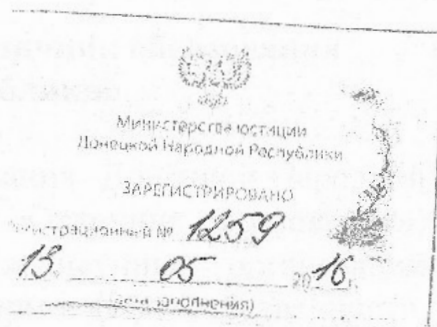 Министерство юстиции
Донецкой Народной Республики
ЗАРЕГИСТРИРОВАНО
регистрационный № 1259
13. 05 2016 г.
(дата заполнения)